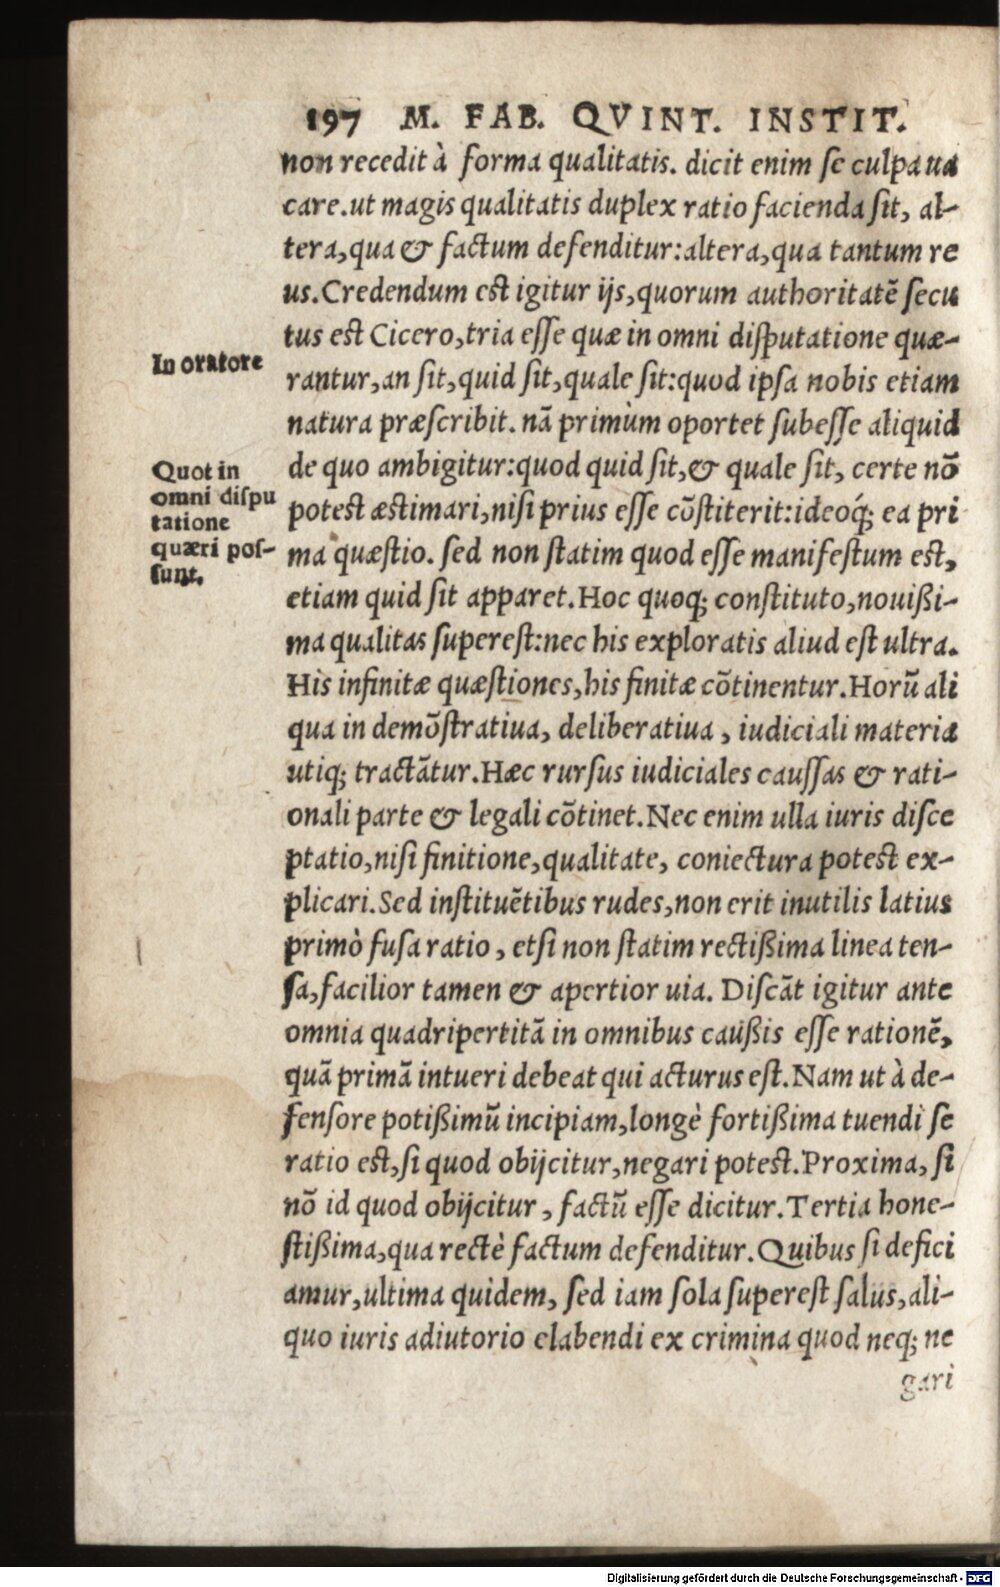 197 M. FAB. QVINT. INSTIT.
non recedit à forma qualitatis. dicit enim ſe culpa ua
care. ut magis qualitatis duplex ratio facienda ſit, al-
tera, qua & factum defenditur: altera, qua tantum re
us. Credendum est igitur ijs, quorum authoritatẽ ſecu
tus est Cicero, tria eſſe quæ in omni diſputatione quæ-
In oratore
rantur, an ſit, quid ſit, quale ſit: quod ipſa nobis etiam
natura præſcribit. nã primùm oportet ſubeſſe aliquid
Quot in
omni diſpu
tatione
quæri poſ-
ſunt.
de quo ambigitur: quod quid ſit, & quale ſit, certe nõ
potest æstimari, niſi prius eſſe cõſtiterit: ideoq́; ea pri
ma quæſtio. ſed non ſtatim quod eſſe manifeſtum eſt,
etiam quid ſit apparet. Hoc quoq; conſtituto, nouißi-
ma qualitas ſupereſt: nec his exploratis aliud eſt ultra.
His infinitæ quæſtiones, his finitæ cõtinentur. Horũ ali
qua in demõſtratiua, deliberatiua, iudiciali materia
utiq; tractãtur. Hæc rurſus iudiciales cauſſas & rati-
onali parte & legali cõtinet. Nec enim ulla iuris diſce
ptatio, niſi finitione, qualitate, coniectura potest ex-
plicari. Sed inſtituẽtibus rudes, non erit inutilis latius
primò fuſa ratio, etſi non ſtatim rectißima linea ten-
ſa, facilior tamen & apertior uia. Diſcãt igitur ante
omnia quadripertitã in omnibus caußis eſſe rationẽ,
quã primã intueri debeat qui acturus eſt. Nam ut à de-
fenſore potißimũ incipiam, longè fortißima tuendi ſe
ratio est, ſi quod obijcitur, negari potest. Proxima, ſi
nõ id quod obijcitur, factũ eſſe dicitur. Tertia hone-
ſtißima, qua rectè factum defenditur. Quibus ſi defici
amur, ultima quidem, ſed iam ſola ſupereſt ſalus, ali-
quo iuris adiutorio elabendi ex crimina quod neq; ne
gari
Digitalisierung gefördert durch die Deutsche Forschungsgemeinschaft - DFG